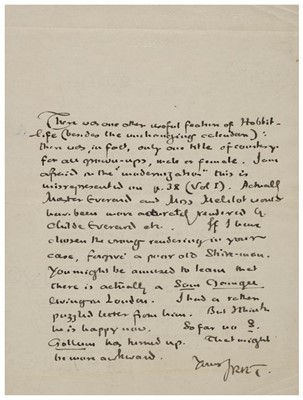 There was one other useful feature of Hobbit-
life (besides the unchanging calendar):
there was, in fact, only one title of courtesy
for all grown-ups, male or female. I am
afraid on the "modernization" this is
misrepresented on p. 38 (Vol I). Actually
Master Everard and Miss Melilot would
have been more accurately rendered by
Childe Everard etc. . If I have
chosen the wrong rendering in your
case, forgive a poor old Shire-man.
You might be amused to learn that
there is actually a Sam Gamgee
living in London. I had a rather
puzzled letter from him. But I think
he is happy now. So far no S.
Gollum has turned up. That might
be more awkward.
Yours JRRT.